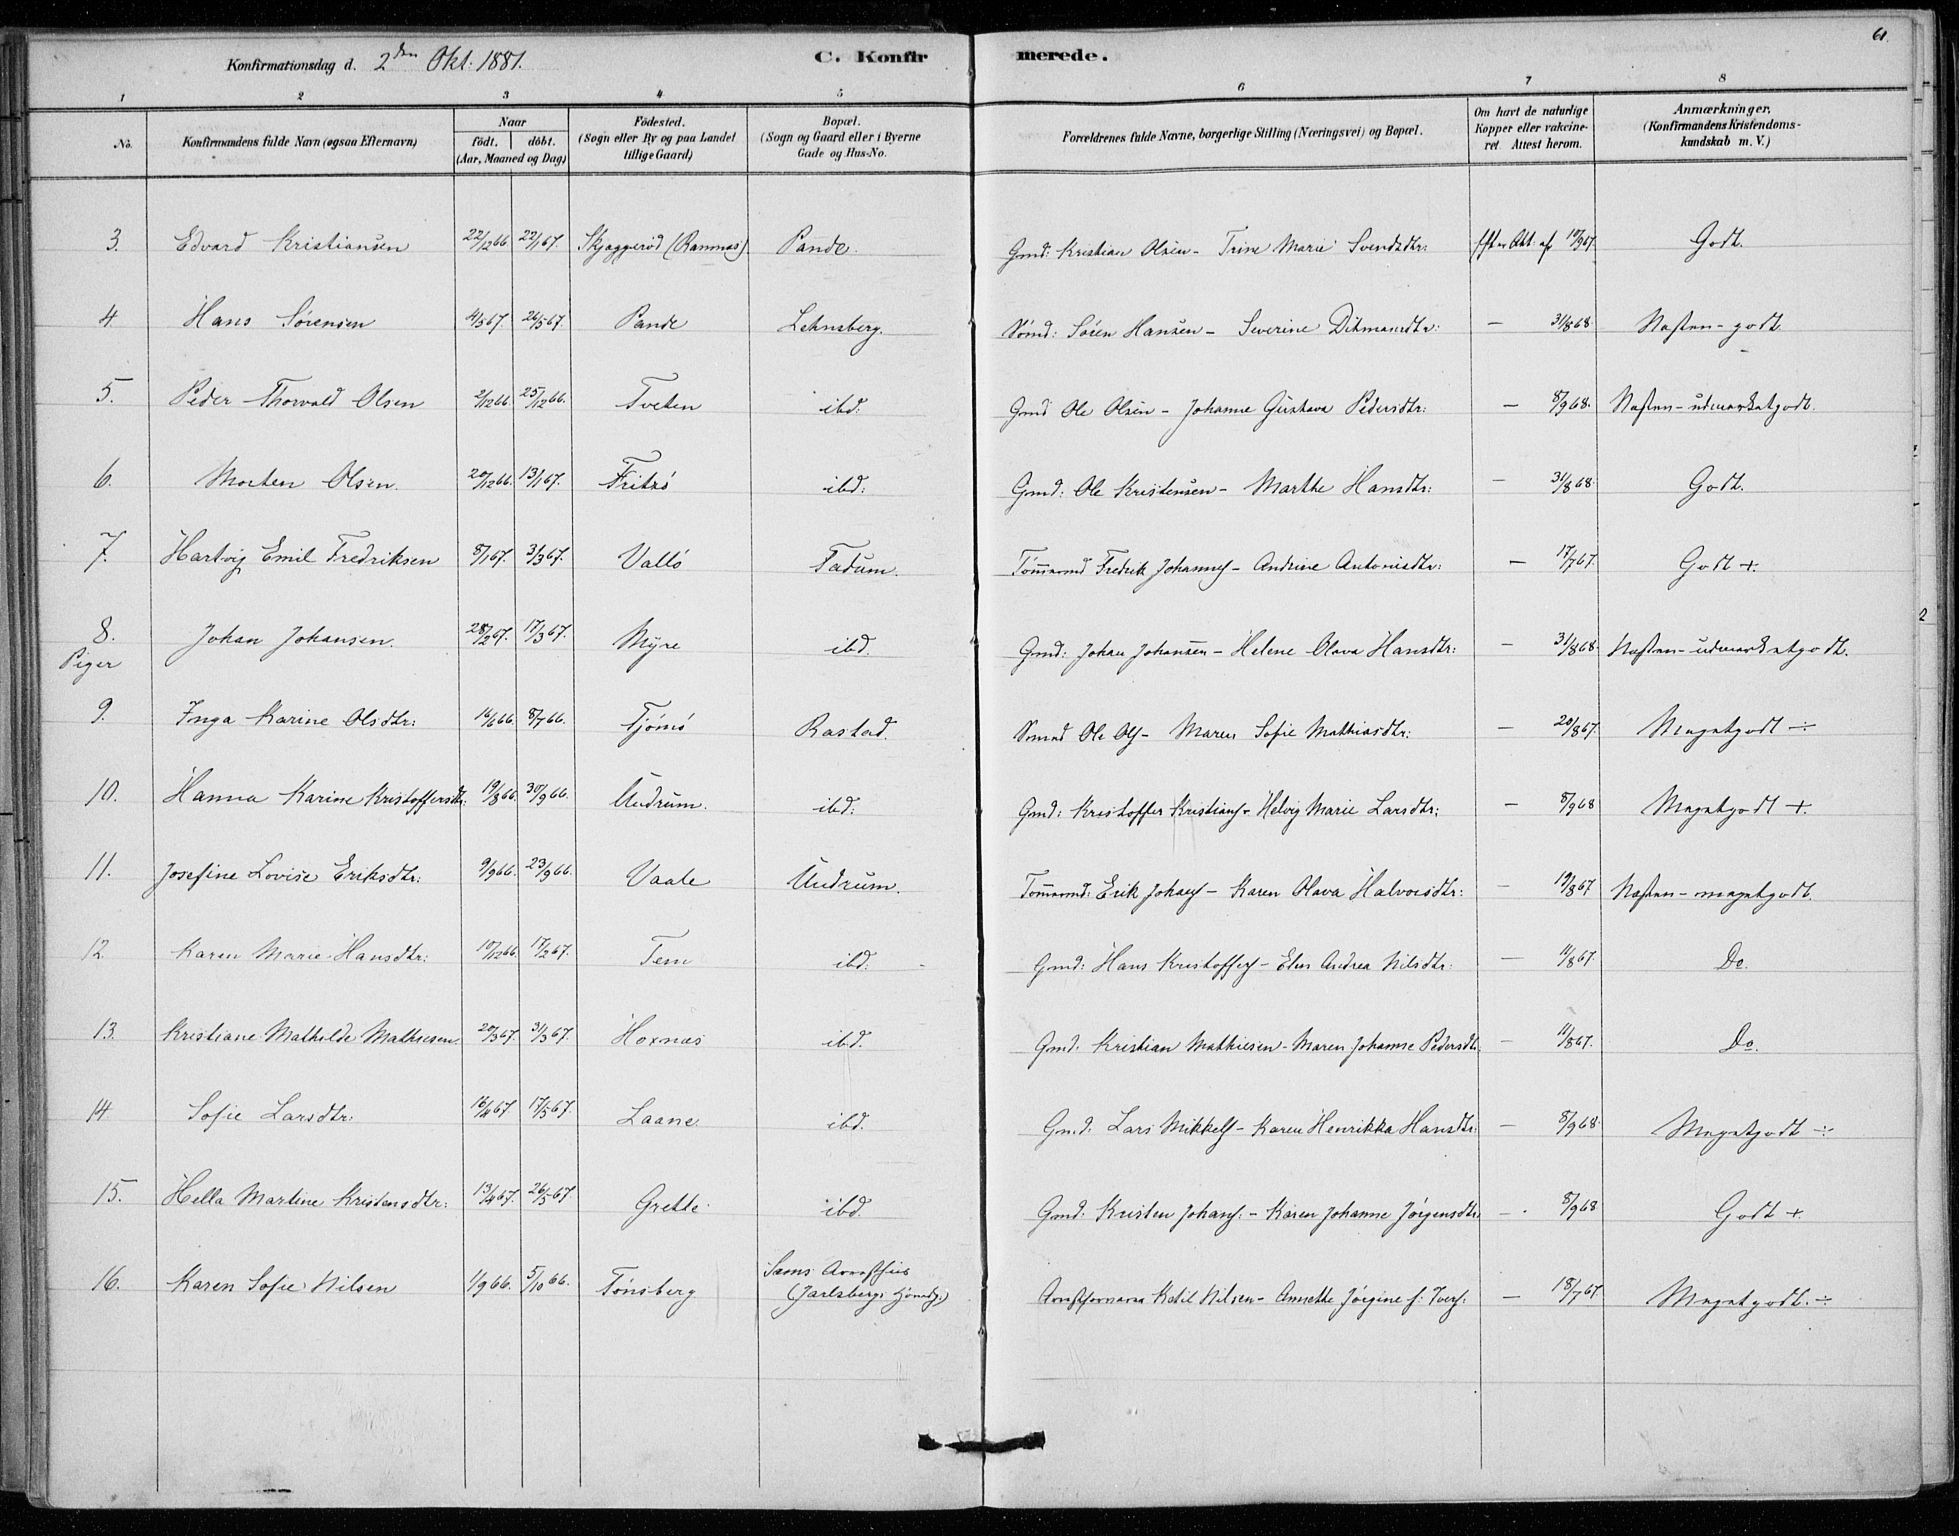 61.
Konfirmationsdag d. 2den Okt. 1881. C. Konfirmerede.
1 2 3 4 5 6 7 8
No. Konfirmandens fulde Navn (ogsaa Efternavn) Naar født. døbt. (Aar, Maaned og Dag) Fødested. (Sogn eller By og paa Landet tillige Gaard) Bopæl. (Sogn og Gaard eller i Byerne Gade og Hus-No. Forældrenes fulde Navne, borgerlige Stilling (Næringsvei) og Bopæl. Om havt de naturlige Kopper eller vakcineret Attest herom. Anmærkninger, (Konfirmandens Kristendomskundskab m. V.)
3. Edvard Kristiansen 22/12 66 22/1 67. Skjaggerød (Ramnæs). Pande. Gmd: Kristian Olsen - Trine Marie Svendsdtr: 10/9 67. Godt.
4. Hans Sørensen 4/3 67. 26/5 67. Pande Lehnsberg. Søren Hansen - Severine Ditmansdtr: — 31/8 68 Næsten - godt
5. Peder Thorvald Olsen 2/12 66. 25/12 66. Tveten ibd: Gmd Ole Olsen - Johanne Gustava Pedersdtr: — 8/9 68. Næsten - udmærketgodt.
6. Morten Olsen. 20/12 66. 13/1 67. Fritzø ibd: Gmd: Ole Kristensen - Marthe Hansdtr: — 31/8 68. Godt.
7. Hartvig Emil Fredriksen 8/1 67. 3/3 67. Vallø Fadum. Tømmermd Fredrik Johannes - Andrine Antonisdtr: — 17/7 67. Godt +.
8. Johan Johansen. 28/2 67. 17/3 67. Myre ibd. Gmd: Johan Johansen - Helene Olava Hansdtr: — 31/8 68. Næsten - udmærketgodt.
Piger
9. Inga Karine Olsdtr: 16/6 66. 8/7 66. Tjømø Rastad. Ole Ols - Maren Sofie Mathiasdtr: — 20/8 67. Megetgodt ÷
10. Hanna Karine Kristoffersdtr: 19/8 66. 30/9 66. Undrum. ibd: Gmd: Kristoffer Kristians - Helvig Marie Larsdtr: — 8/9 68 Megetgodt +.
11. Josefine Lovise Eriksdtr: 9/9 66. 23/9 66. Vaale Undrum. Tømmermd: Erik Johans - Karen Olava Halvorsdtr: — 19/8 67 Næsten - megetgodt.
12. Karen Marie Hansdtr: 10/12 66. 17/2 67. Tem ibd. Gmd: Hans Kristoffers - Elen Andrea Nilsdtr: — 11/8 67. Do.
13. Kristiane Mathilde Mathiesen. 20/3 67. 31/3 67. Hoxnæs ibd. Gmd. Kristian Mathiesen - Maren Johanne Pedersdtr: — 11/8 67. Do.
14. Sofie Larsdtr: 16/4 67 17/5 67. Laane. ibd. Gmd: Lars Mikkels - Karen Henrikka Hansdtr: — 8/9 68. Megetgodt ÷
15. Hella Martine Kristensdtr: 13/4 67. 26/5 67 Grette ibd. Gmd. Kristen Johans: - Karen Johanne Jørgensdtr. — 8/9 68 Godt +.
16. Karen Sofie Nilsen 1/9 66. 5/10 66. Tønsberg Sems Arresthus (Jarlsbergs Arrestforvarer Ketil Nilsen - Annette Jørgine f: Ivers: — 18/7 67. Megetgodt. ÷